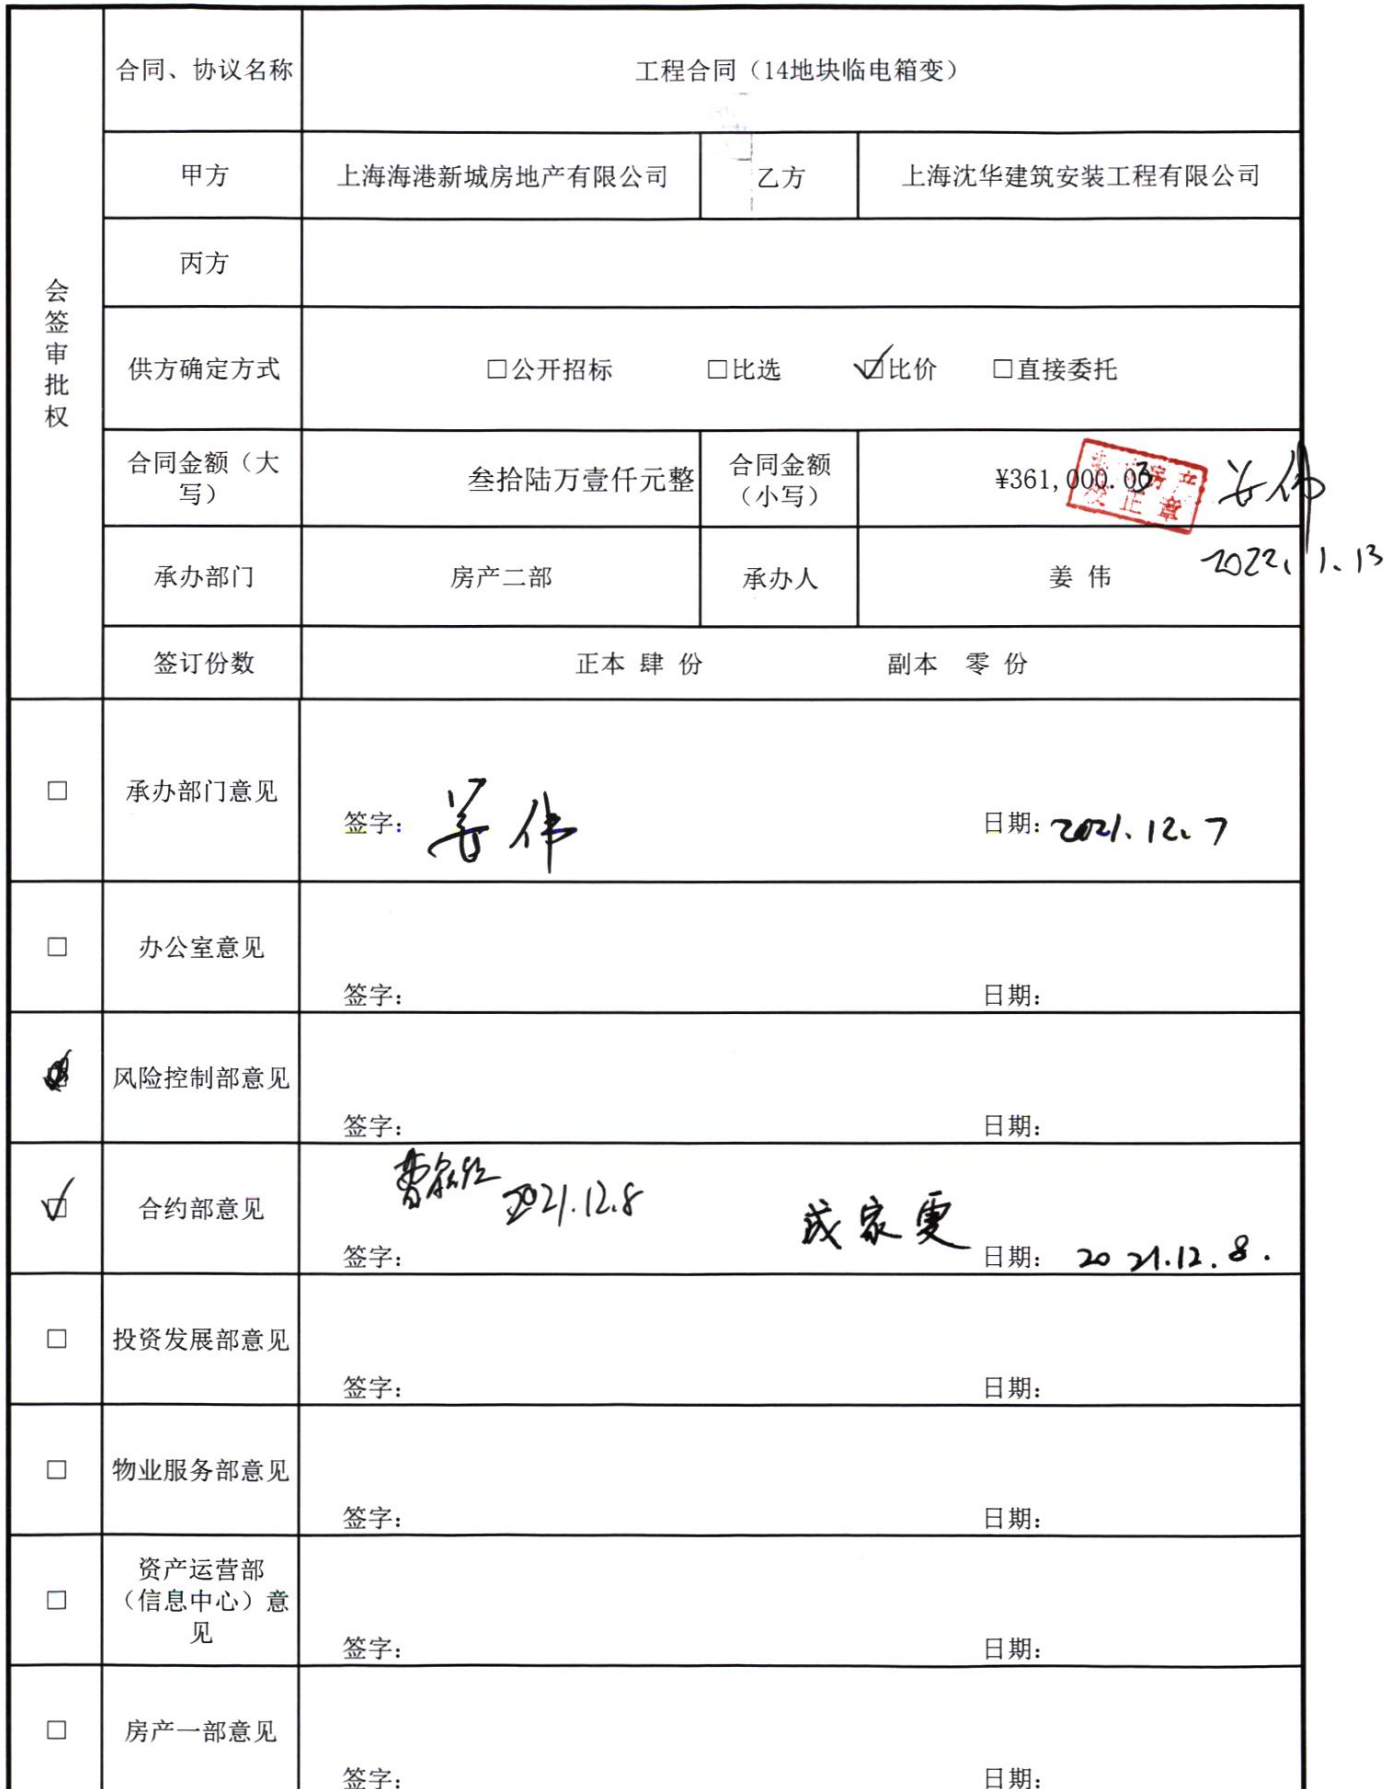 合同、协议名称 工程合同（14地块临电箱变）
甲方 上海海港新城房地产有限公司 乙方 上海沈华建筑安装工程有限公司
丙方
会签审批权
供方确定方式 □公开招标 □比选 ☑比价 □直接委托
合同金额（大写） 叁拾陆万壹仟元整 合同金额（小写） ¥361,000.03
正章
姜伟
2022.1.13
承办部门 房产二部 承办人 姜 伟
签订份数 正本 肆 份 副本 零 份
□ 承办部门意见
签字： 姜伟 日期：2021.12.7
□ 办公室意见
签字： 日期：
风险控制部意见
签字： 日期：
☑ 合约部意见
2021.12.8
签字： 日期： 2021.12.8.
□ 投资发展部意见
签字： 日期：
□ 物业服务部意见
签字： 日期：
□ 资产运营部
（信息中心）意
见
签字： 日期：
□ 房产一部意见
签字： 日期：